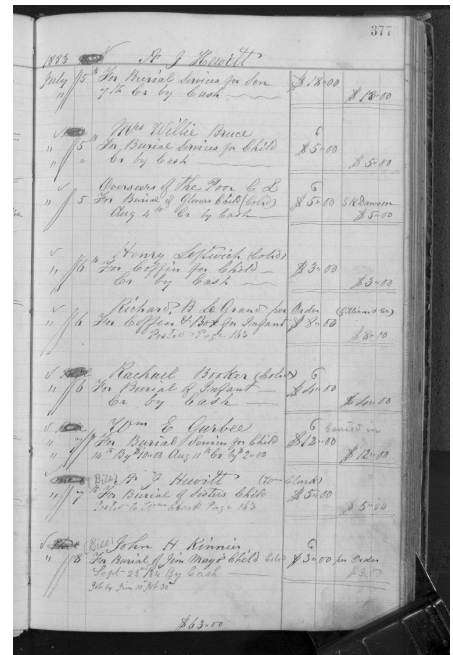 377
1883 A J Hewitt
July 5th For Burial Services for Son $18.00
" 7th Cr by Cash $18.00
Mrs Willie Bruce
" 5th For Burial Services for Child $5.00
" " Cr by Cash $5.00
Overseers of The Poor C L
" 5 For Burial of Glovers Child (Cold) $5.00 S K Dawson
Aug 4th Cr by Cash $5.00
Henry Leftwich (Cold)
" 6th For Coffin for Child $3.00
Cr by Cash $3.00
Richard B Le Grand per Order
" 6 For Coffin & Box for Infant $8.00
Posted Page 163 $8.00
Rachael Booker (Cold)
" 6 For Burial of Infant $4.00
Cr by Cash $4.00
Wm E Gurbee
" 7th For Burial Services for Child $12.00
10th By $10.00 Aug 11th Cr by 2.00 $12.00
(Bill) Hewitt (Tom Clark)
" 7th For Burial of Sisters Child $5.00
Posted to Clark Page 163 $5.00
(Bill) John H Kinnier
" 8 For Burial of Jim Mays Child (Cold) $3.00 per Order
Sept 25th By Cash
$63.00